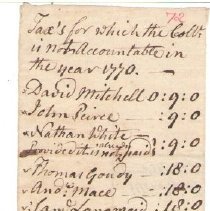 Tax's for which the Coll:r
is not Accountable in
the year 1770.
David Mitchell 0:9:0
John Peirce 0:9:0
Nathan White 0:9:0
Provided it is not already paid
Thomas Goudy :18:0
And:w Mace :18:0
:18:0